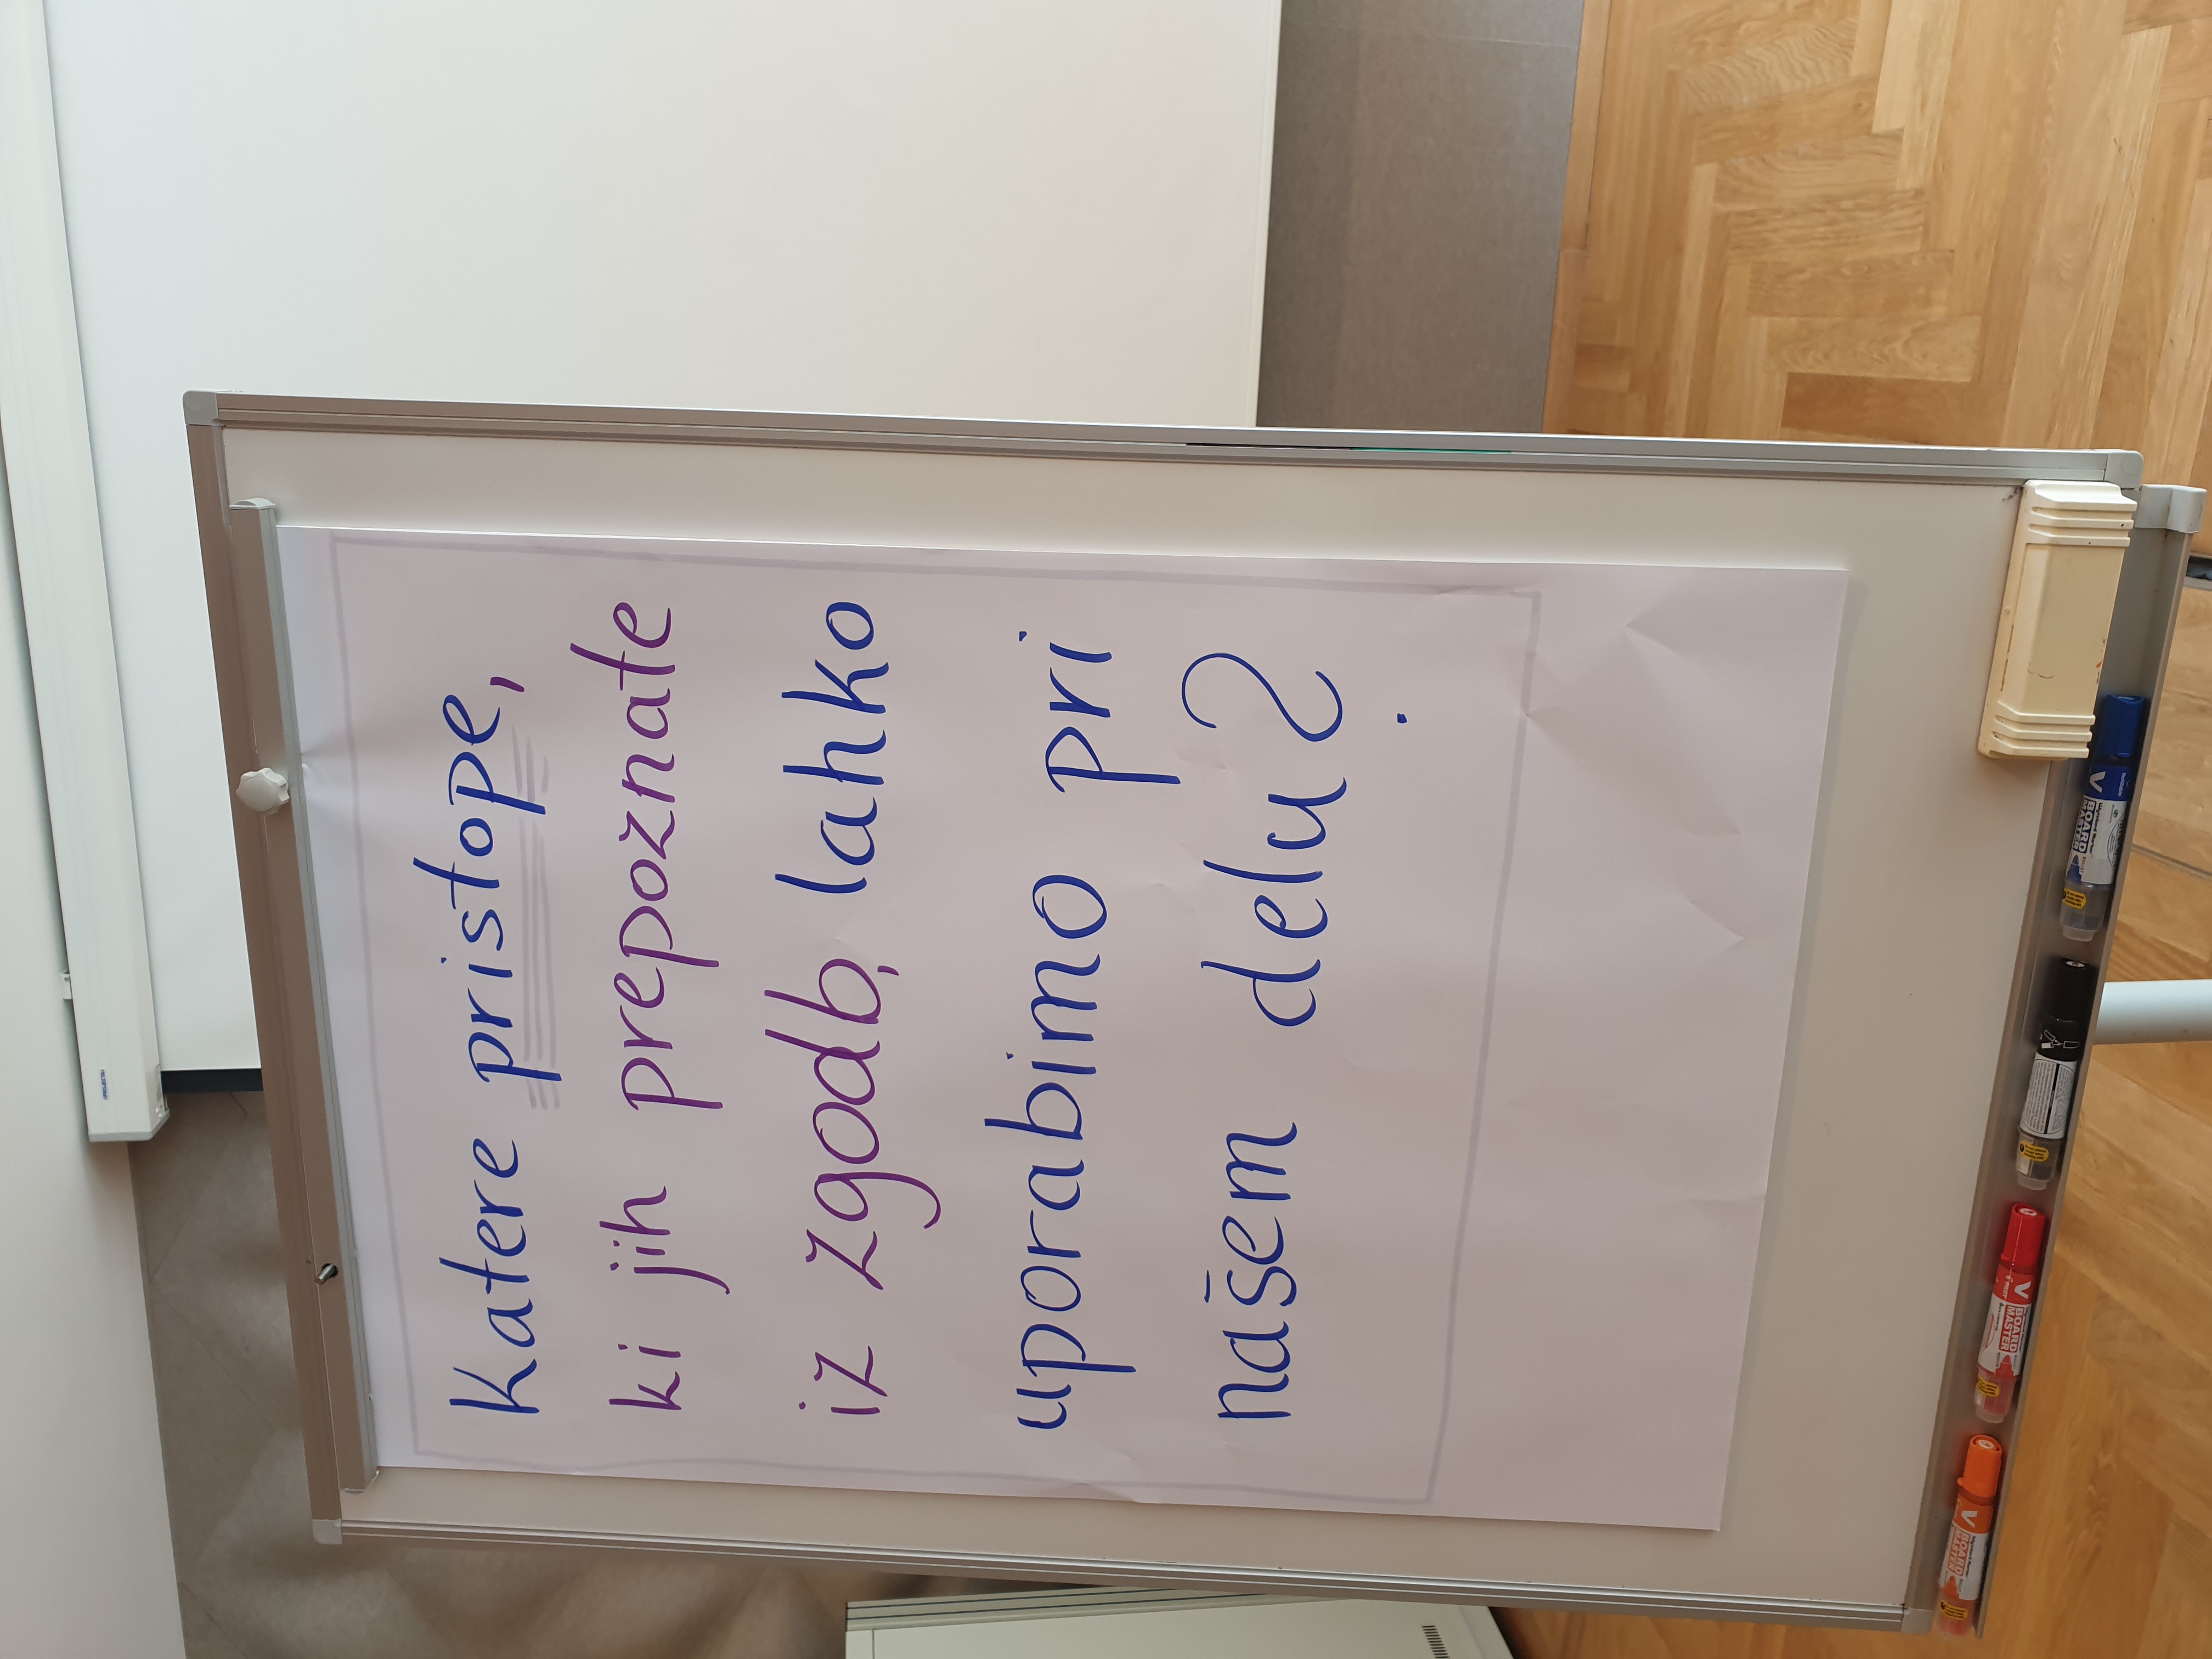 Katere pristope,
ki jih prepoznate
iz zgodb, lahko
uporabimo pri
našem delu?
V
BOARD
MASTER
V
BOARD
MASTER
V
BOARD
MASTER